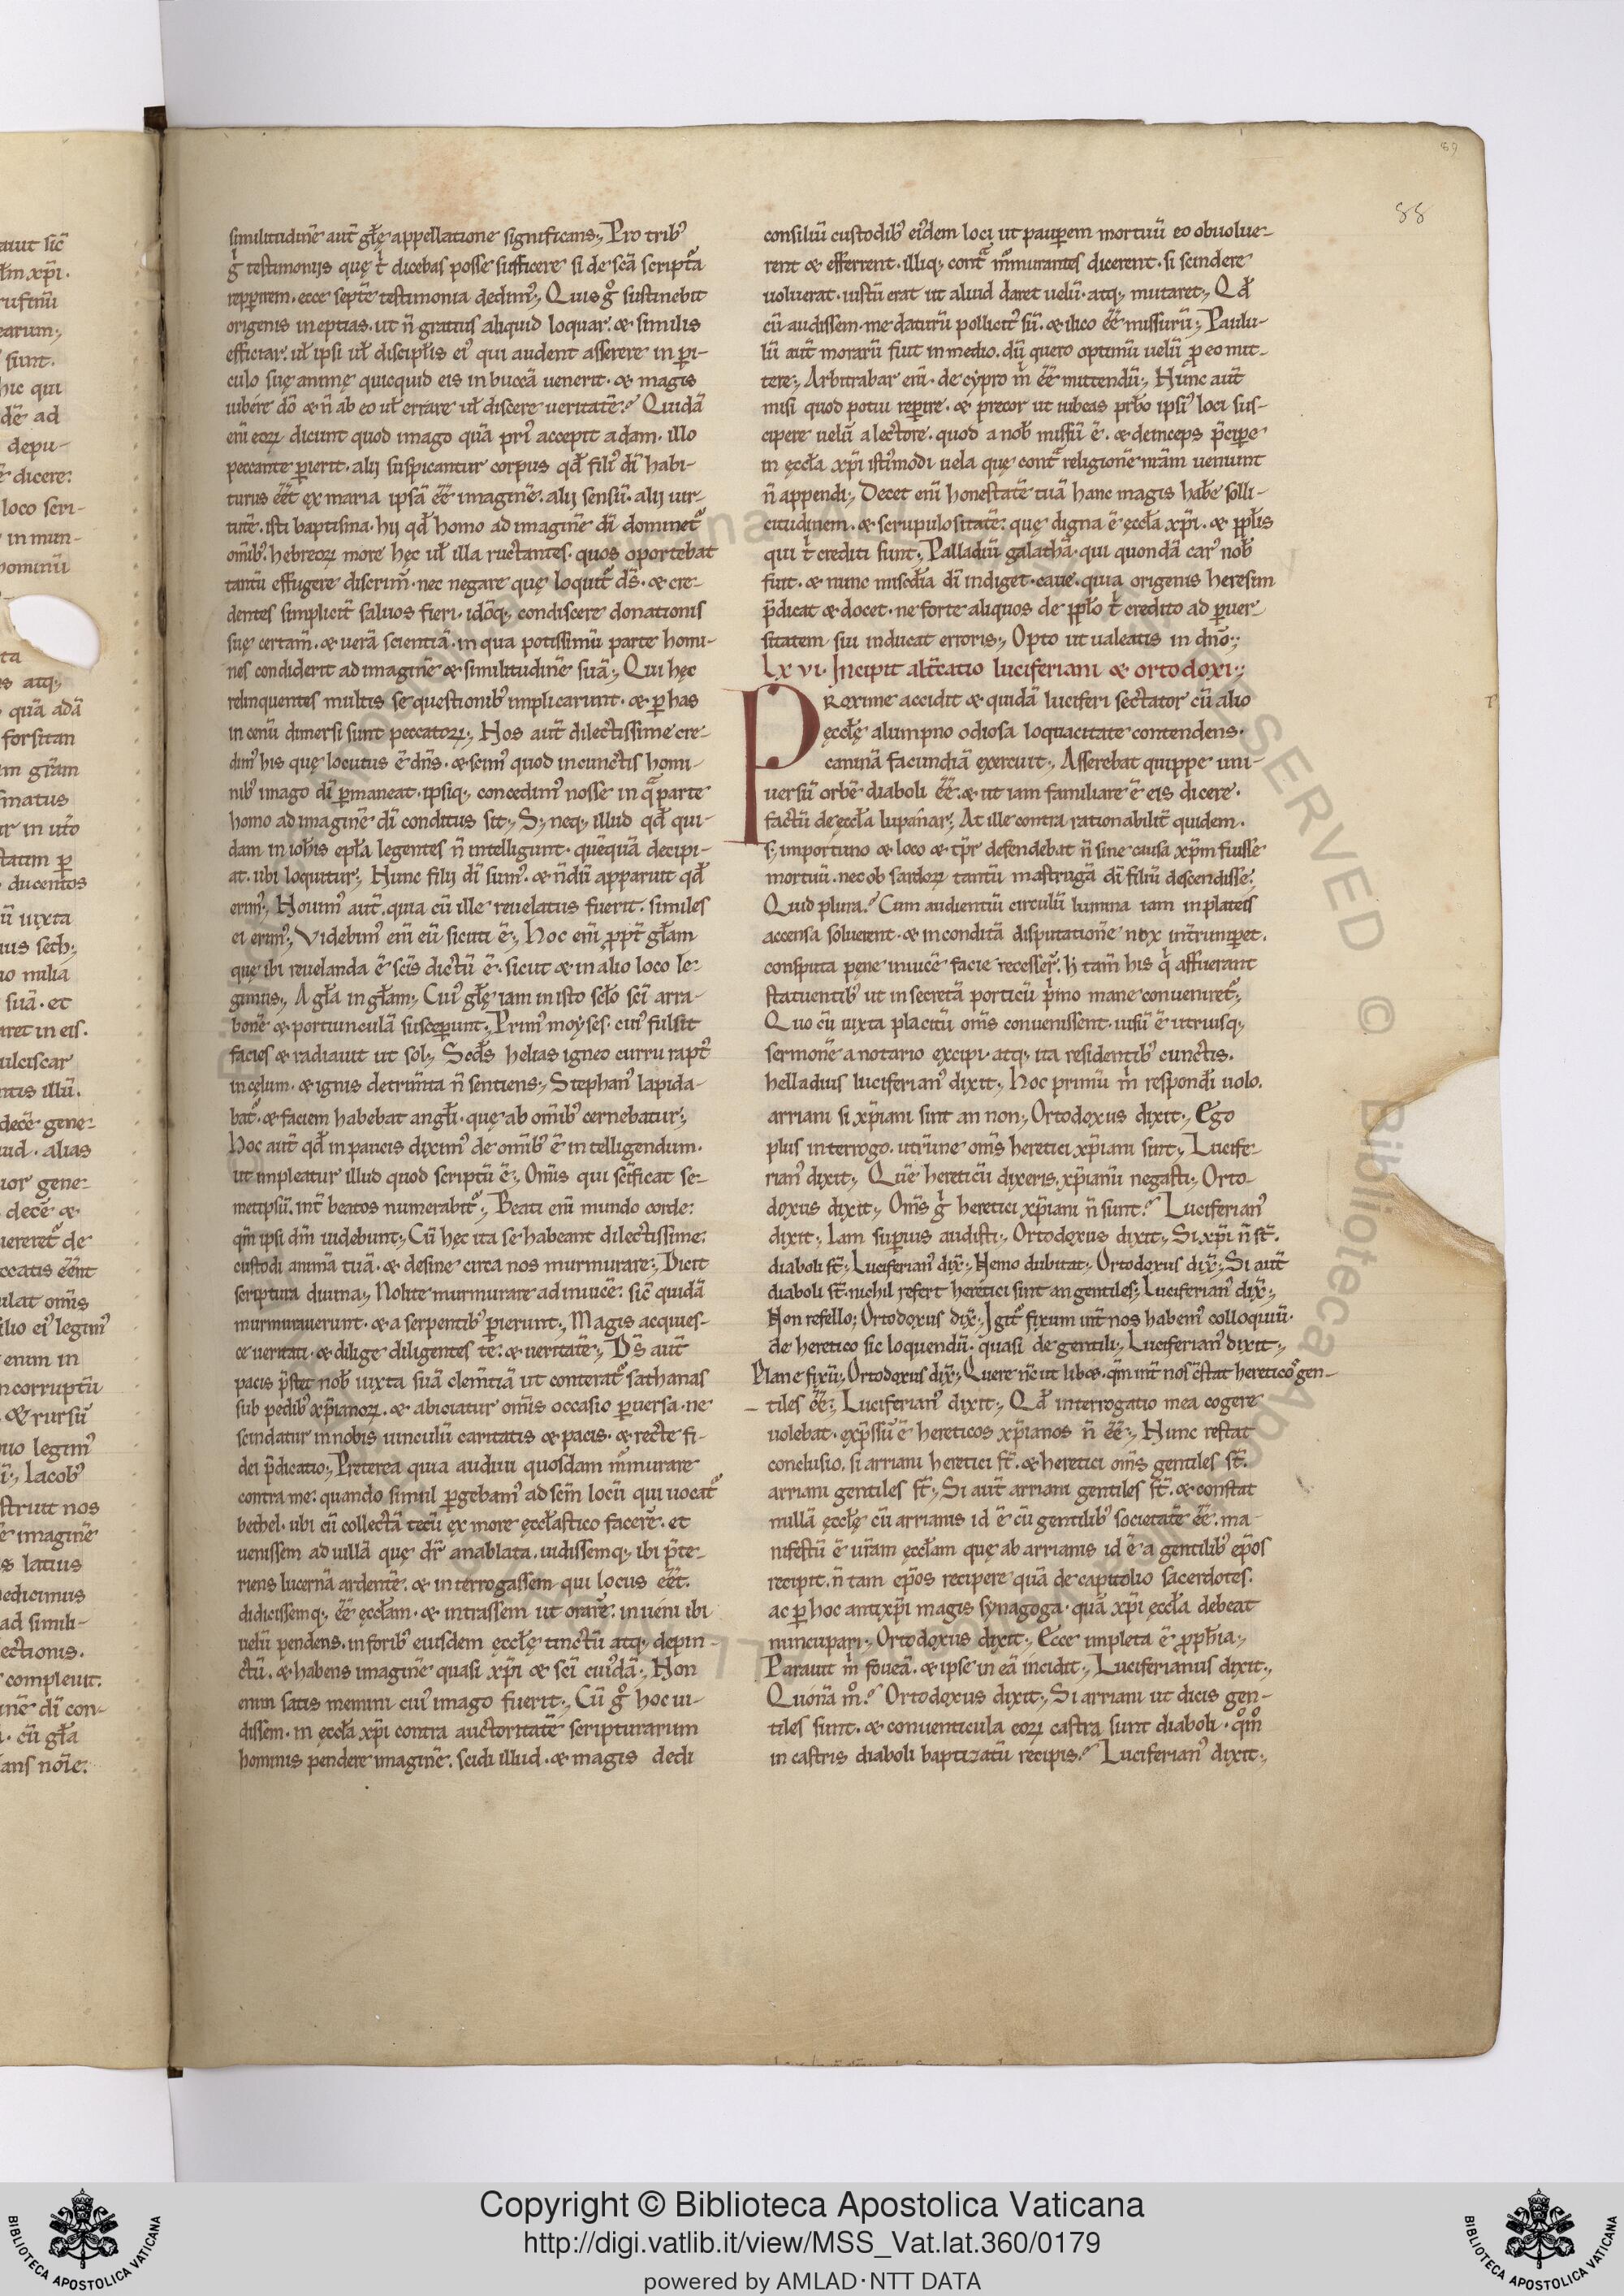 88
similitudinē aut̄ gl̄ę appellatione significans;, Pro trib᾽
g̊ testimonijs quę t̊ dicebas posse sufficere si de sc̄a script̄a
repperirem. ecce septē testimonia dedim᾽;, Quis g̊ sustinebit
origenis ineptias. ut n̄ gratius aliquid loquar. & similis
efficiar. ul̄ ipsi ul̄ discipl̄is ei᾽ qui audent asserere in ꝑi-
culo suę animę quicquid eis in buccā uenerit. & magis
iubére dō & n̄ ab eo ul̄ errare ul̄ discere ueritatē? Quidā
enī eoꝝ dicunt quod imago quā pri᾽ accepit adam. illo
peccante ꝑierit. alij suspicantur corpus qd̄ fili᾽ dī habi-
turus eēt ex maria ipsā eē̄ imaginē. alij sensū. alij uir-
tutē. isti baptisma. hij qd̄ homo ad imaginē dī dominet᷑
omīb᾽. hebreoꝝ more hęc ul̄ illa ructantes. quos oportebat
tantū effugere discrim̄. nec negare quę loquit᷑ ds̄. & cre-
dentes simplicit̄ saluos fieri. idōq;, condiscere donationis
suę certam̄. & uerā scientiā. in qua potissimū parte homi-
nes condiderit ad imaginē & similitudinē suā;, Qui hęc
relinquentes multis se questionib᾽ implicarunt. & ꝑ has
in cenū dimersi sunt peccatoꝝ;, Hos aut̄ dilectissime cre-
dim᾽ his quę locutus ē dn̄s. & scim᾽ quod in cunctis homi-
nib᾽ imago dī ꝑmaneat. ipsiq;, concedim᾽ nosse in qͣ parte
homo ad imaginē dī conditus sit;, S; neq;, illud qd̄ qui-
dam in ioh̄is epl̄a legentes n̄ intelligunt. quēquā decipi-
at. ubi loquitur;, Hunc filij dī sum᾽. & n̄dū apparuit qd̄
erim᾽;, Nouim᾽ aut̄. quia cū ille reuelatus fuerit. similes
ei erim᾽;, Videbim᾽ enī eū sicuti ē;, Hoc enī ꝓpt̄ gl̄am
quę ibi reuelanda ē sc̄is dictū ē. sicut & in alio loco le-
gimus;, A gl̄a in gl̄am;, Cui᾽ gl̄ę iam in isto scl̄o sc̄i arra-
bonē & portiunculā susceperunt;, Prim᾽ moyses. cui᾽ fulsit
facies & radiauit ut sol;, Scd̄s helias igneo curru rapt᾽
in cęlum. & ignis detrim̄ta n̄ sentiens;, Stephan᾽ lapida-
bat᷑. & faciem habebat angl̄i. quę ab omīb᾽ cernebatur;,
Hoc aut̄ qd̄ in paucis dixim᾽ de omīb᾽ ē intelligendum.
ut impleatur illud quod scriptū ē;, Om̄is qui sc̄ificat se-
metipsū. int̄ beatos numerabit᷑;, Beati enī mundo corde:
qm̄ ipsi dm̄ uidebunt;, Cū hęc ita se habeant dilectissime:
custodi animā tuā. & desine circa nos murmurare;, Dicit
scriptura diuina;, Nolite murmurare ad inuicē: sic̄ quidā
murmurauerunt. & a serpentib᾽ ꝑierunt;, Magis acquies-
ce ueritati. & dilige diligentes te. & ueritatē;, Ds̄ aut̄
pacis p̄stet nob̄ iuxta suā clem̄tiā ut conterat᷑ sathanas
sub pedib᾽ xp̄ianoꝝ. & abiciatur om̄is occasio ꝑuersa. ne
scindatur in nobis uinculū caritatis & pacis. & recte fi-
dei p̄dicatio;, Preterea quia audiui quosdam m᷑murare
contra me: quando simul ꝑgebam᾽ ad sc̄m locū qui uocat᷑
bethel. ubi cū collectā tecū ex more ęccl̄astico facerē. et
uenissem ad uillā quę dr̄ anablata. uidissemq;, ibi p̄te-
riens lucernā ardentē. & interrogassem qui locus eēt.
didicissemq;, eē̄ ęccl̄am. & intrassem ut orarē: inuéni ibi
uelū pendens. in forib᾽ eiusdem ęccl̄ę tinctū atq;, depin-
ctū. & habens imaginē quasi xp̄i & sc̄i cui᾽dā;, Non
enim satis memini cui᾽ imago fuerit;, Cū g̊ hoc ui-
dissem. in ęccl̄a xp̄i contra auctoritatē scripturarum
hominis pendere imaginē. scidi illud. & magis dedi
consiliū custodib᾽ ei᾽dem loci ut pauꝑem mortuū eo obuolue-
rent & efferrent. illiq;, contͣ m᷑murantes dicerent. si scindere
uoluerat. iustū erat ut aliud daret uelū. atq;, mutaret;, Qd̄
cū audissem. me daturū pollicit᾽ sū. & ilico eē̄ missurū;, Paulu-
lū aut̄ morarū fuit in medio. dū quero optimū uelū ꝓ eo mit-
tere;, Arbitrabar enī. de cypro m̊ eē̄ mittendū;, Nunc aut̄
misi quod potui repperire. & precor ut iubeas prb̄o ipsi᾽ loci sus-
cipere uelū a lectore. quod a nob̄ missū ē. & deinceps p̄cipe
in ęccl̄a xp̄i isti᾽modi uela quę contͣ religionē nr̄am ueniunt
n̄ appendi;, Decet enī honestatē tuā hanc magis hab̄e solli-
citudinem. & scrupulositatē: quę digna ē ęccl̄a xp̄i. & ppl̄is
qui t̊ crediti sunt;, Palladiū galathā. qui quondā car᾽ nob̄
fuit. & nunc misc̄dia dī indiget. caue. quia origenis heresim
p̄dicat & docet. ne forte aliquos de ppl̄o t̊ credito ad ꝑuer-
sitatem sui inducat erroris;, Opto ut ualeatis in dn̄o;,
Lxvi. Incipit alt̄catio luciferiani & ortodoxi;,
Proxime accidit & quidā luciferi sectator cū alio
ęccl̄ę alumpno odiosa loquacitate contendens.
caninā facundiā exercuit;, Asserebat quippe uni-
uersū orbē diaboli eē̄. & ut iam familiare ē eis dicere.
factū de ęccl̄a lupanar;, At ille contra rationabilit̄ quidem.
s; importuno & loco & tp̄r defendebat n̄ sine causa xp̄m fuisse
mortuū. nec ob sardoꝝ tantū mastrugā dī filiū descendisse;
Quid plura? Cum audientiū circulū lumina iam in plateis
accensa soluerent. & inconditā disputationē nox int̄rumperet.
consputa pęne inuicē facie recesser̄. h̊ tam̄ his q̊ affuerant
statuentib᾽ ut in secretā porticū p̊mo mane conueniret᷑;,
Quo cū iuxta placitū om̄s conuenissent. uisū ē utriusq;,
sermonē a notario excipi. atq;, ita residentib᾽ cunctis.
helladius luciferian᾽ dixit;, Hoc primū m̊ respondi uolo.
arriani si xp̄iani sint an non;, Ortodoxus dixit;, Ego
plus interrogo. utrūne om̄s heretici xp̄iani sint;, Lucife-
rian᾽ dixit;, Quē hereticū dixeris. xp̄ianū negasti;, Orto-
doxus dixit;, Om̄s g̊ heretici xp̄iani n̄ sunt? Luciferian᾽
dixit;, Iam superius audisti;, Ortodoxus dixit;, Si xp̄i n̄ st̄.
diaboli st̄;, Luciferian᾽ dix̄;, Nemo dubitat;, Ortodoxus dix̄;, Si aut̄
diaboli st̄. nichil refert heretici sint an gentiles;, Luciferian᾽ dix̄;,
Non refello; Ortodoxus dix̄;, Igit᷑ fixum int̄ nos habem᾽ colloquiū.
de heretico sic loquendū. quasi de gentili;, Luciferian᾽ dixit;,
Plane fixū;, Ortodoxus dix̄;, Quere nc̄ ut lib&. qm̄ int̄ nos c̄stat hereticos gen-
tiles eē̄;, Luciferian᾽ dixit;, Qd̄ interrogatio mea cogere
uolebat. exp̄ssū ē hereticos xp̄ianos n̄ eē̄;, Nunc restat
conclusio. si arriani heretici st̄. & heretici om̄s gentiles st̄.
arriani gentiles st̄;, Si aut̄ arriani gentiles st̄. & constat
nullā ęccl̄ę cū arrianis id ē cū gentilib᾽ societatē eē̄. ma-
nifestū ē ur̄am ęccl̄am quę ab arrianis id ē a gentilib᾽ ep̄os
recipit. n̄ tam ep̄os recipere quā de capitolio sacerdotes.
ac ꝑ hoc antixp̄i magis synagoga. quā xp̄i ęccl̄a debeat
nuncupari;, Ortodoxus dixit;, Ecce impleta ē ꝓph̄ia;,
Parauit m̊ foueā. & ipse in eā incidit;, Luciferianus dixit;,
Quónā m̊? Ortodoxus dixit;, Si arriani ut dicis gen-
tiles sunt. & conuenticula eoꝝ castra sunt diaboli. qͦm̊
in castris diaboli baptizatū recipis? Luciferian᾽ dixit;,
Copyright © Biblioteca Apostolica Vaticana
http://digi.vatlib.it/view/MSS_Vat.lat.360/0179
powered by AMLAD·NTT DATA